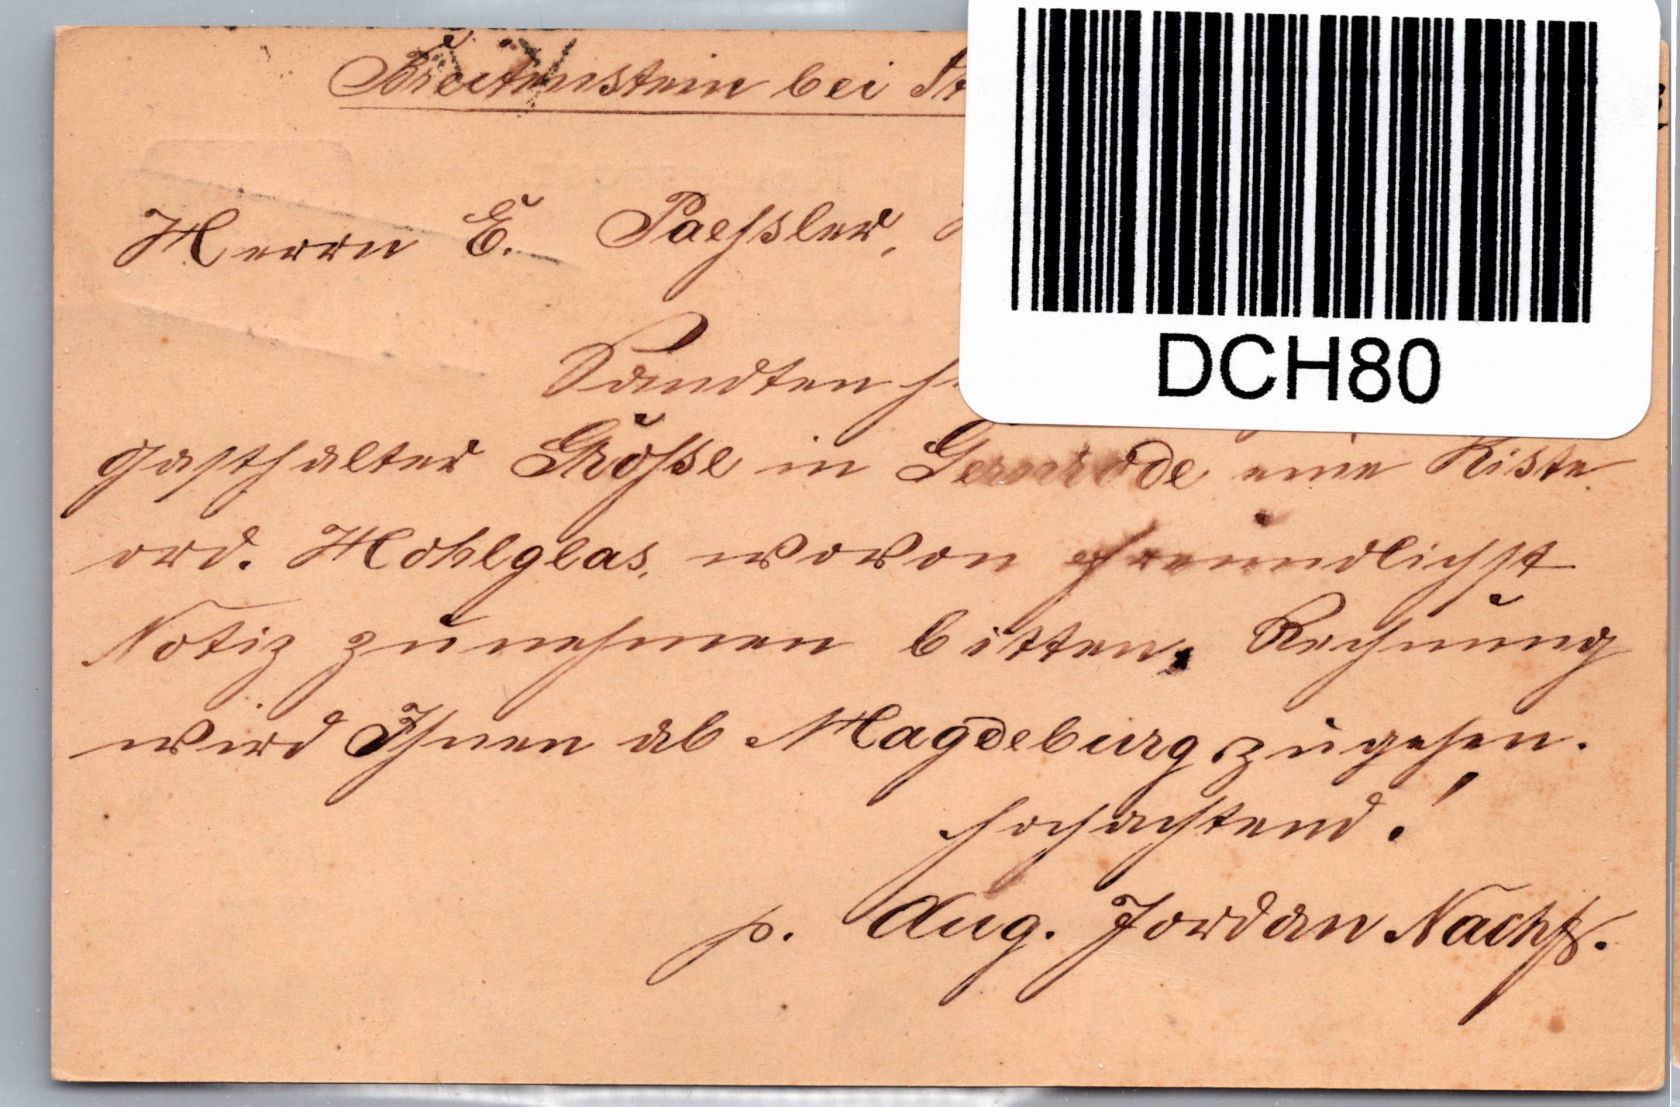 Breitenstein bei St
Herrn E. Paessler,
DCH80
Sandten
gasthalter Größe in Gernrode eine Kiste
ord. Hohlglas, wovon freundlichst
Notiz zu nehmen bitten. Rechnung
wird Ihnen ab Magdeburg zugehen.
Hochachtend!
p. Aug. Jordan Nachf.